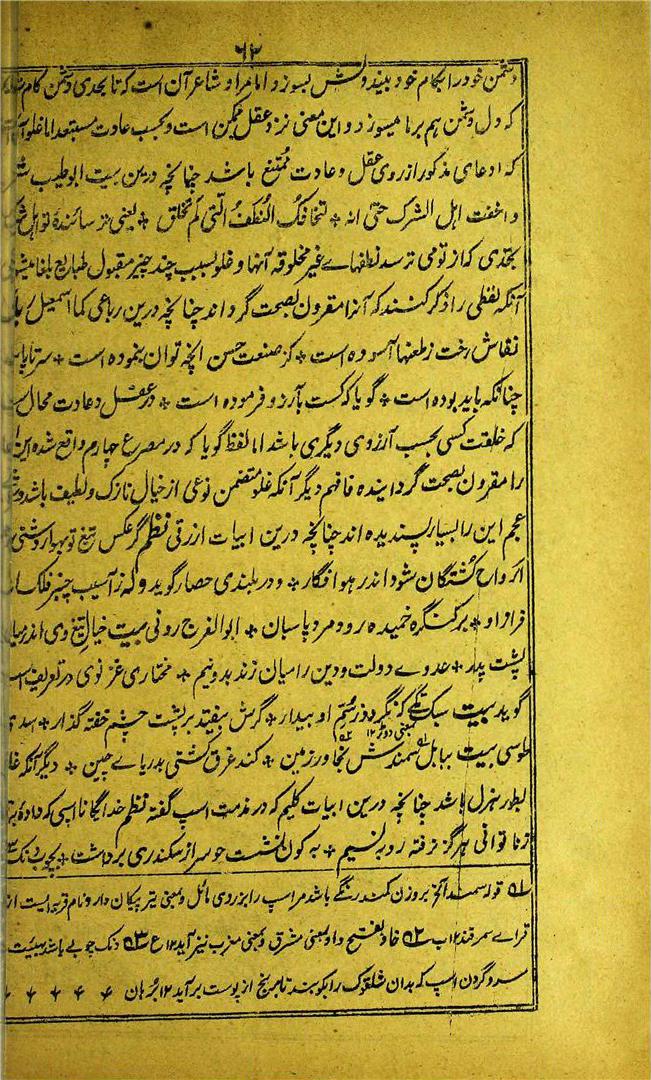 ۶۲
دشمن خود را بکام خود بیند و دلش بسوزد اما مراد شاعر آن است که تا بحدی دشمن کام
که دل دشمن هم بر ما میسوزد و این معنی نزد عقل ممکن است و بحسب عادت مستبعد اما غلو آنست
که ادعای مذکور از روی عقل و عادت ممتنع باشد چنانچه درین بیت ابو طیب
و اخفت اهل الشرک حتی انه * لتخافک النطف التی لم تخلق * یعنی ترسانندهٔ تو اهل شرک
بحدی که از تو می ترسد نطفهاے غیر مخلوقه آنها و غلو بسبب چند چیز مقبول طبایع بلغا میشود
آنکه لفظی را ذکر کنند که آنرا مقرون بصحت گرداند چنانچه درین رباعی کمال اسمعیل رباعی
نقاش رخت ز طعنها آسوده است * کز صنعت حسن آنچه توان بنموده است * سر تا پا
چنانکه باید بوده است * گویا که کست بآرزو فرموده است * در عقل و عادت محال است
که خلقت کسی بحسب آرزوی دیگری باشد اما لفظ گویا که در مصرع چهارم واقع شده این
را مقرون بصحت گردانیده فافهم دیگر آنکه غلو متضمن نوعی از خیال نازک و لطیف باشد
عجم این را بسیار پسندیده اند چنانچه درین ابیات ازرقی نظم گر عکس تیغ تو بهوا روشنی
ارواح کشتگان شود اندر هوا فگار * و در بلندی حصار گوید و له ز آسیب چنبر فلک
فراز او * بر کنگره خمیده رود مرد پاسبان * ابو الفرج رونی بیت خیال تیغ وی اندر
پشت پدر * عدوے دولت و دین را میان زند بدو نیم * مختاری غزنوی در تعریف اسپ
گوید بیت سبک تگے که نگردد ز سم او بیدار * گرش بیفتد بر پشت چشم خفته گذار * اسدی
طوسی بیت ببابل سمندش نجا ور زمین * کند غرق کشتی بدریاے چین * دیگر آنکه
بطور هزل باشد چنانچه درین ابیات کلیم که در مذمت اسپ گفته نظم خدایگانا اسپی که داده
ز ناتوانی هرگز نرفته رو به نسیم * به کون نشست چو سر از سکندری برداشت * بچوب
۵۱ قوله سمند الخ بروزن کمند رنگے باشد مر اسپ را بزردی مائل و بمعنی تیر پیکان دار و نام قریه ایست از
قراے سمرقند ۱۲ ب ۵۲ خاور بفتح واو بمعنی مشرق و بمعنی مغرب نیز آید ۱۲ ع ۵۳ دنگ چوبے باشد بهیئت
سر و گردن اسپ که بدان شلتوک را بکوبند تا برنج از پوست بر آید ۱۲ برهان